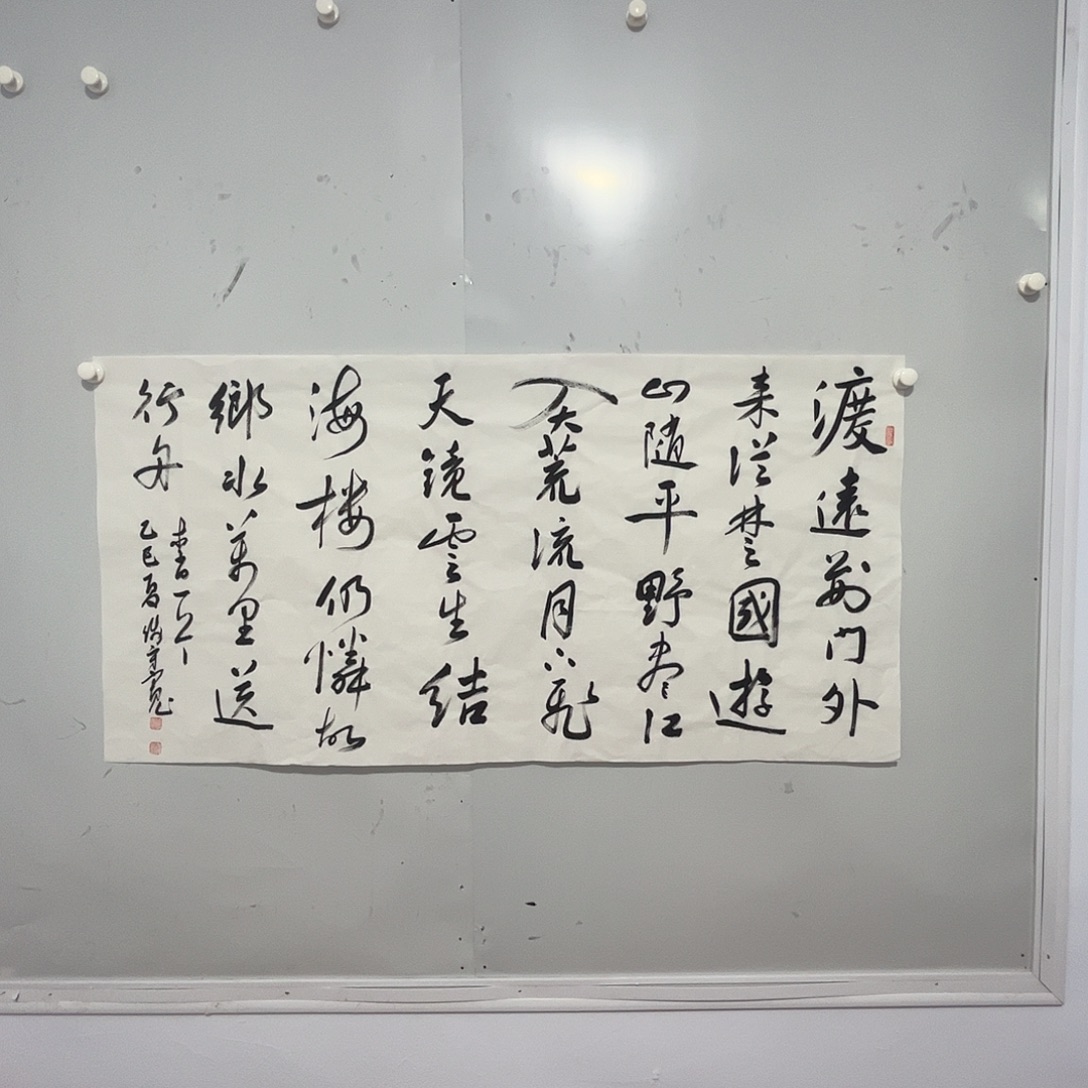 渡遠荆門外
来從楚國遊
山随平野盡江
入大荒流月下飛
天鏡雲生結
海楼仍憐故
鄉水萬里送
行舟
乙巳夏